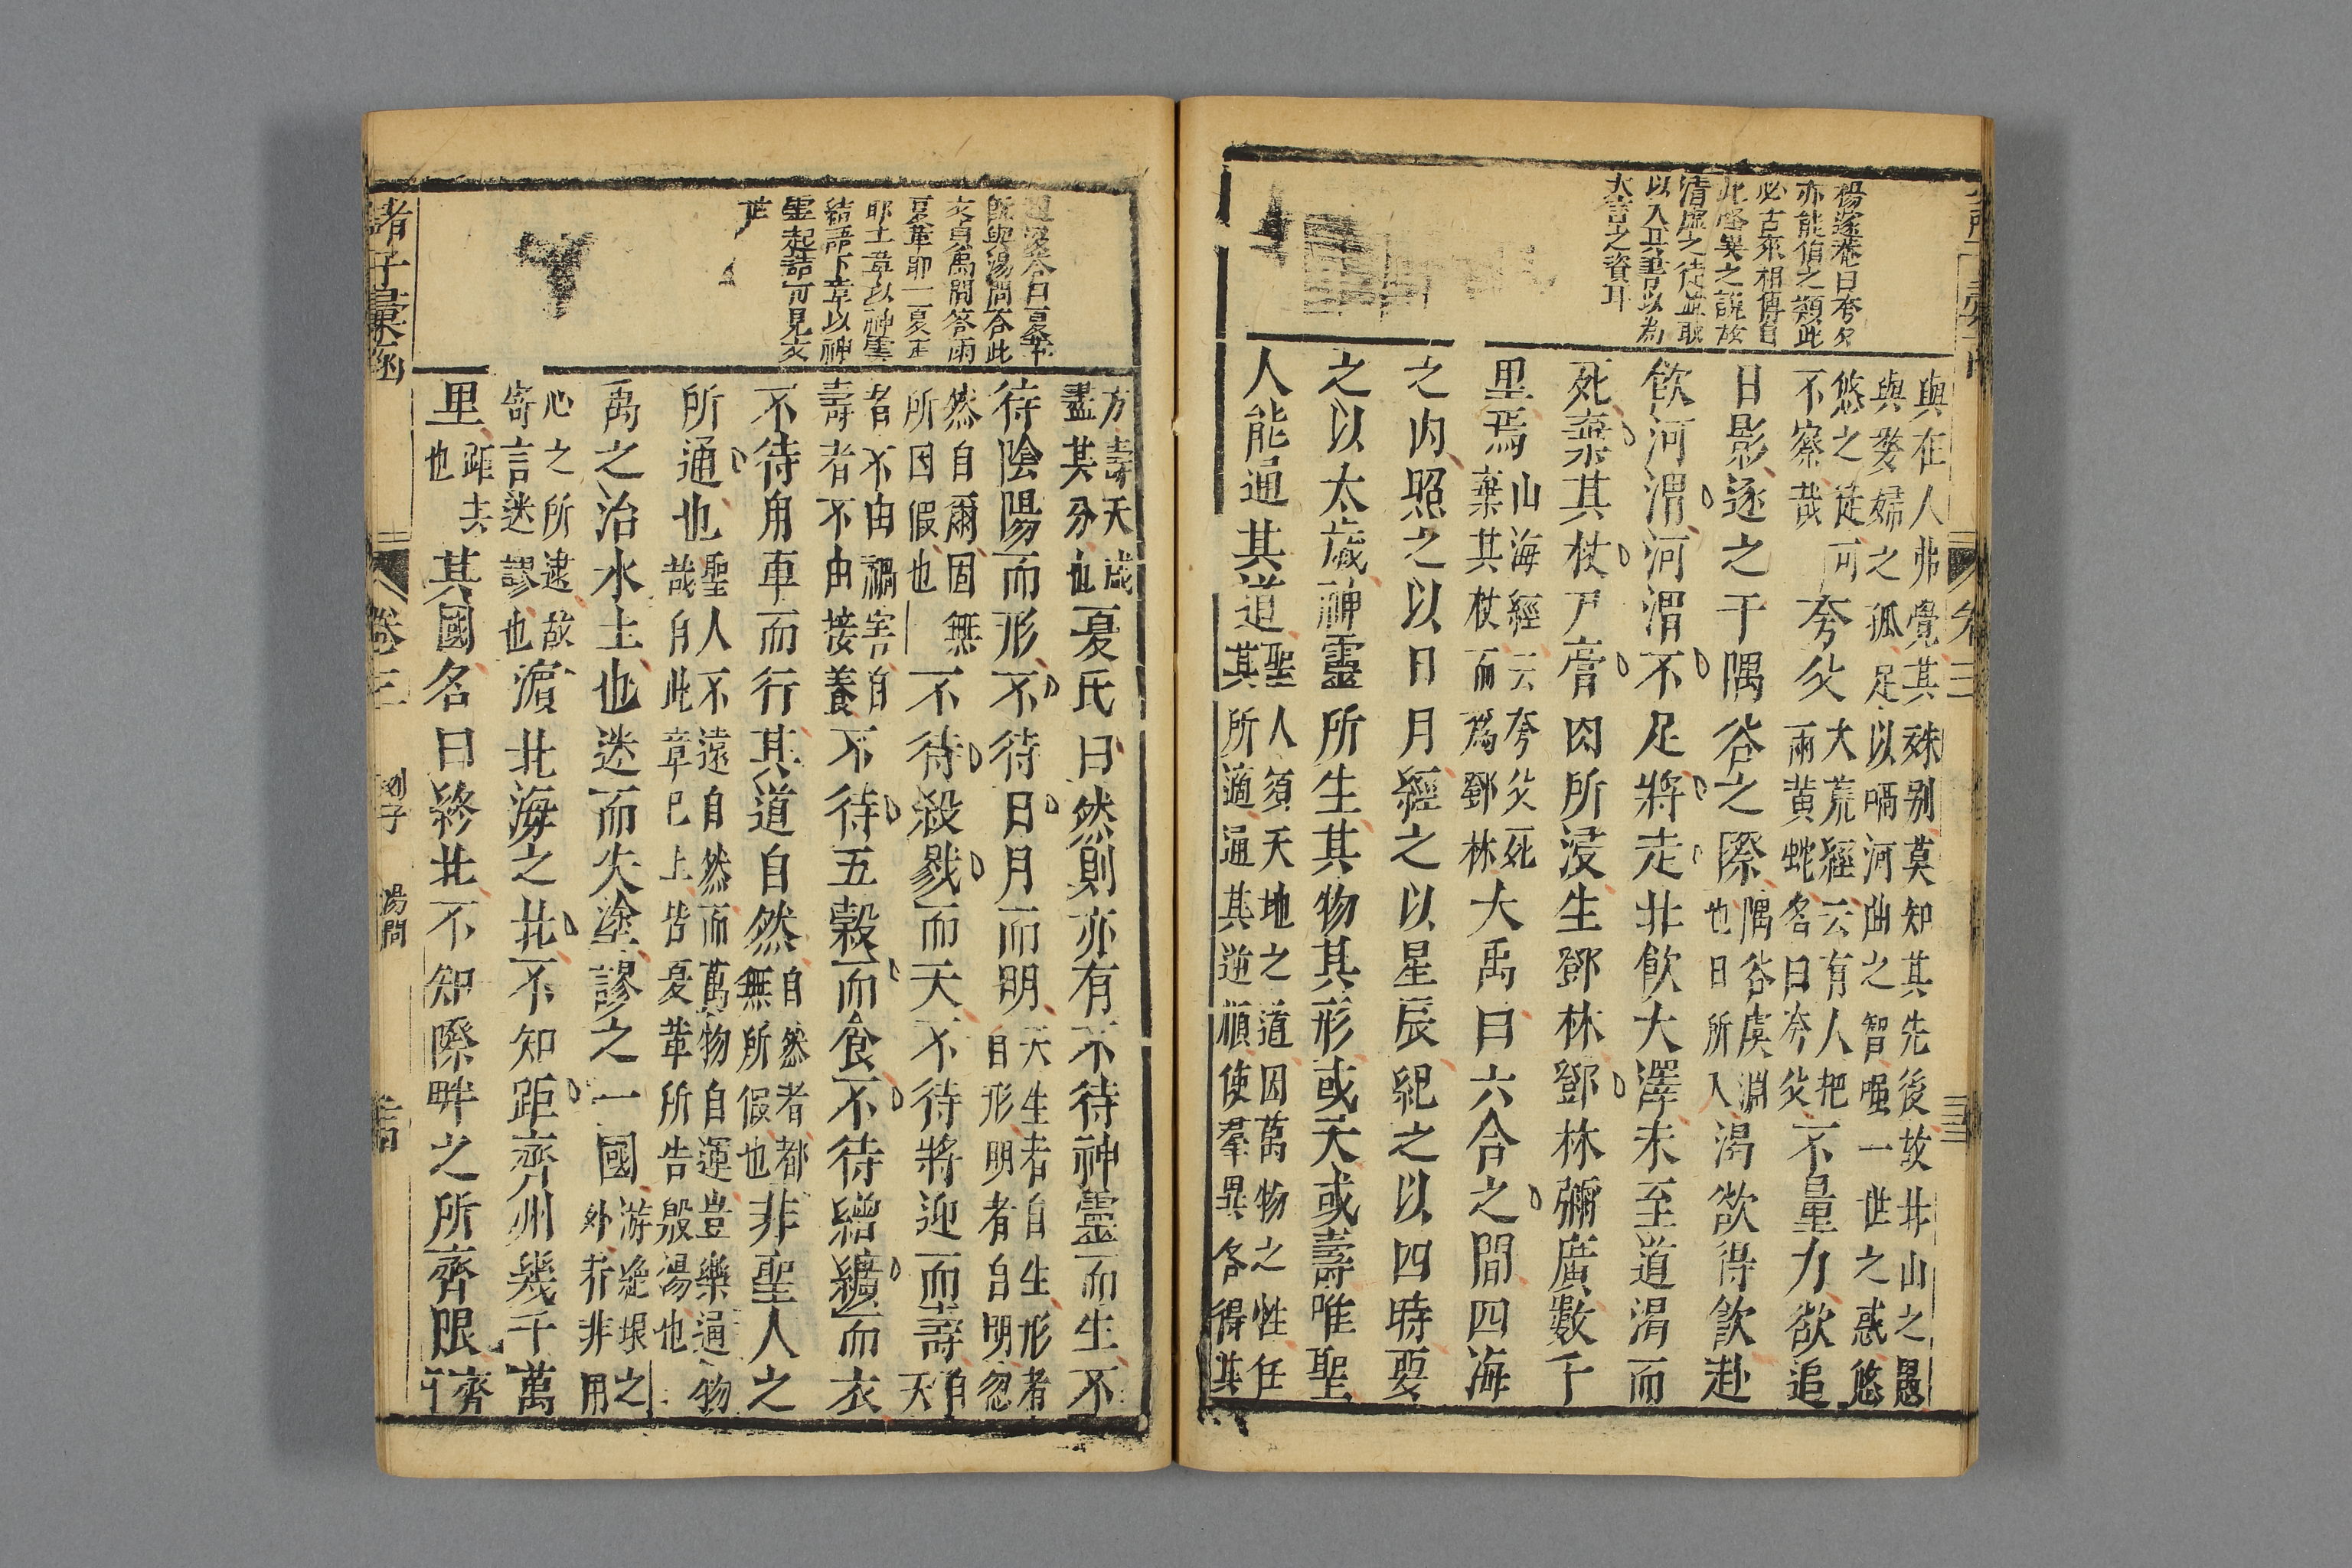 楊遂菴曰夸父
亦能伯之類此
必古來相傳自
此怪異之說故
清虛之徒並取
以入其書以為
大言之資耳
與在人弗覺其殊别莫知其先後故北山之愚
與嫠婦之孤足以哂河曲之智嗤一世之惑悠
悠之徒可
不察哉
夸父
大荒經云有人把
兩黄蛇名曰夸父
不量力欲追
日影逐之于隅谷之際
隅谷虞淵
也日所入
渴欲得飲赴
飲河渭河渭不足將走北飲大澤未至道渴而
死棄其杖尸膏肉所浸生鄧林鄧林彌廣數千
里焉
山海經云夸父死
棄其杖而爲鄧林
大禹曰六合之間四海
之内照之以日月經之以星辰紀之以四時要
之以太歲神靈所生其物其形或夭或壽唯聖
人能通其道
聖人須天地之道因萬物之性任
其所適通其逆順使羣異各得其
卷三
曰夏革
既與湯問答此
又見禹問答雨
夏革耶一夏革
耶上章以神靈
結語下章以神
聖起語可見文
方壽夭咸
盡其分也
夏氏曰然則亦有不待神靈而生不
待陰陽而形不待日月而明
夭生者自生形者
自形明者自明忽
然自爾固無
所因假也
不待殺戮而夭不待將迎而壽
自夭
者不由禍害自
壽者不由接養
不待五穀而食不待繒纊而衣
不待舟車而行其道自然
自然者都
無所假也
非聖人之
所通也
聖人不違自然而萬物自運豈樂通物
哉自此章已上皆夏革所告殷湯也
禹之治水土也迷而失塗謬之一國
游絶垠之
外者非用
心之所逮故
寄言迷謬也
濵北海之北不知距齊州幾千萬
里
距去
也
其國名曰終北不知際畔之所齊限
齊
諸子彙函
卷三
列子
湯問